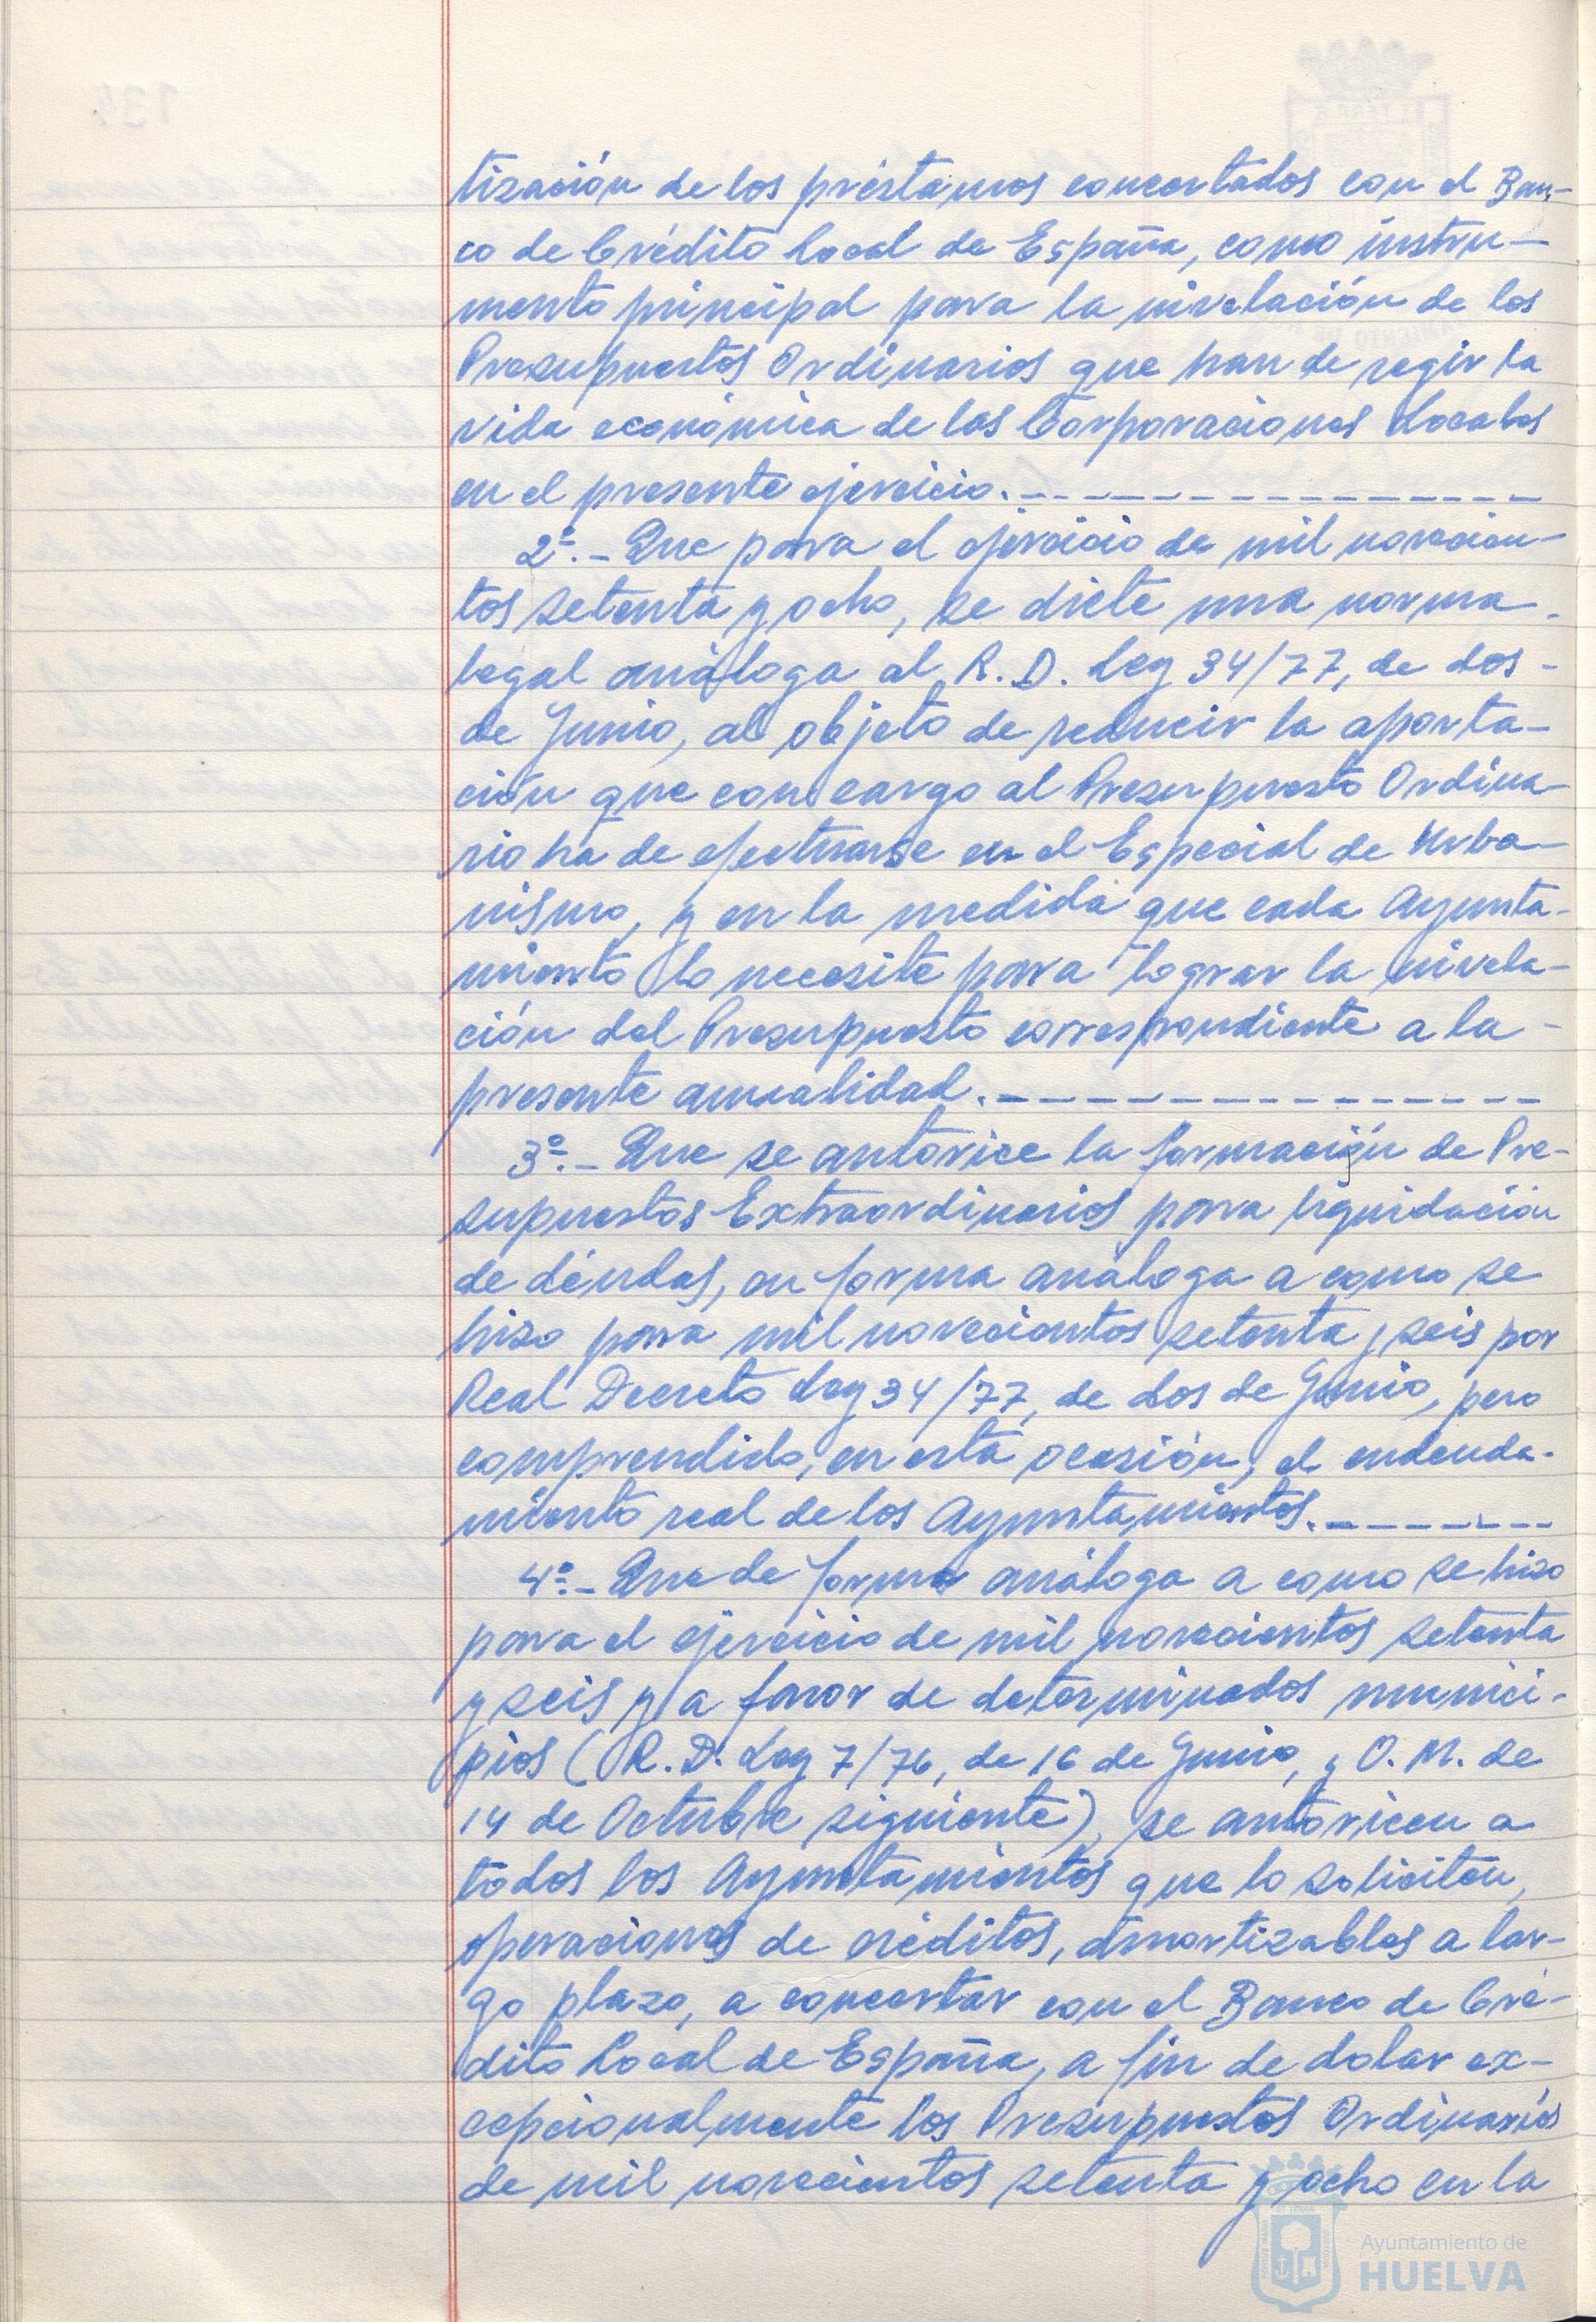 tización de los préstamos concertados con el Ban-
co de Crédito Local de España, como instru-
mento principal para la nivelación de los
Presupuestos Ordinarios que han de regir la
vida económica de las Corporaciones Locales
en el presente ejercicio.________________
2º.- Que para el ejercicio de mil novecien-
tos setenta y ocho, se dicte una norma-
legal análoga al R. D. Ley 34/77, de dos-
de Junio, al objeto de reducir la aporta-
ción que con cargo al Presupuesto Ordina-
rio ha de efectuarse en el Especial de Urba-
nismo, y en la medida que cada Ayunta-
miento lo necesite para lograr la nivela-
ción del Presupuesto correspondiente a la-
presente anualidad.________________
3º.- Que se autorice la formación de Pre-
supuestos Extraordinarios para liquidación
de déudas, en forma análoga a como se
hizo para mil novecientos setenta y seis por
Real Decreto Ley 34/77, de dos de Junio, pero
comprendido, en esta ocasión, el endeuda-
miento real de los Ayuntamientos.________
4º.- Que de forma análoga a como se hizo
para el ejercicio de mil novecientos setenta
y seis y a favor de determinados munici-
pios (R. D. Ley 7/76, de 16 de Junio, y O. M. de
14 de Octubre siguiente), se autoricen a
todos los Ayuntamientos que lo soliciten,
operaciones de créditos, amortizables a lar-
go plazo, a concertar con el Banco de Cré-
dito Local de España, a fin de dotar ex-
cepcionalmente los Presupuestos Ordinarios
de mil novecientos setenta y ocho en la
Ayuntamiento de
HUELVA